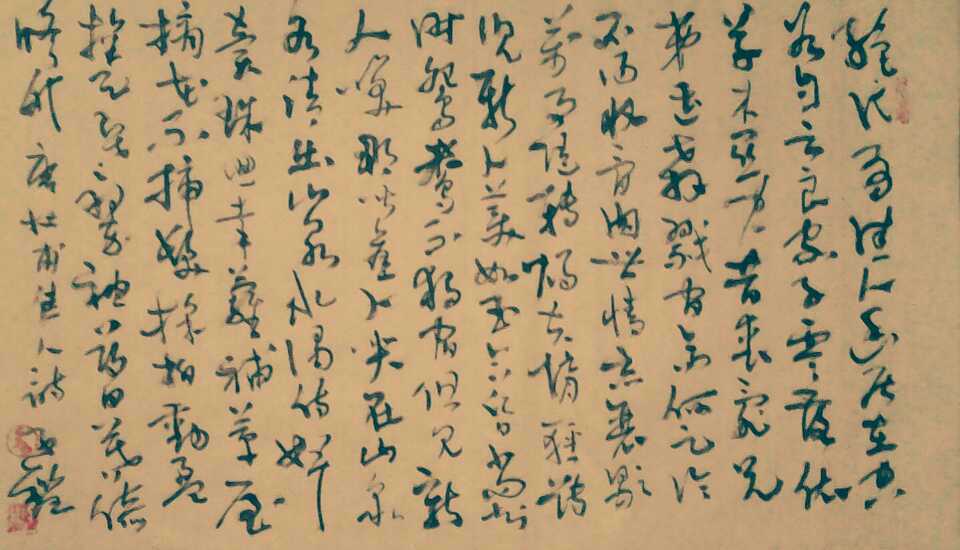 絕代有佳人幽居在空
谷自云良家子零落依
草木關中昔喪亂兄
弟遭殺戮官高何足論
不得收骨肉世情惡衰歇
萬事隨轉燭夫婿輕薄
兒新人美如玉合昏尚知
時鴛鴦不獨宿但見新
人笑那聞舊人哭在山泉
水清出山泉水濁侍婢
賣珠迴牽蘿補茅屋
摘花不插髮採柏動盈
掬天寒翠袖薄日暮倚
修竹 唐杜甫佳人詩